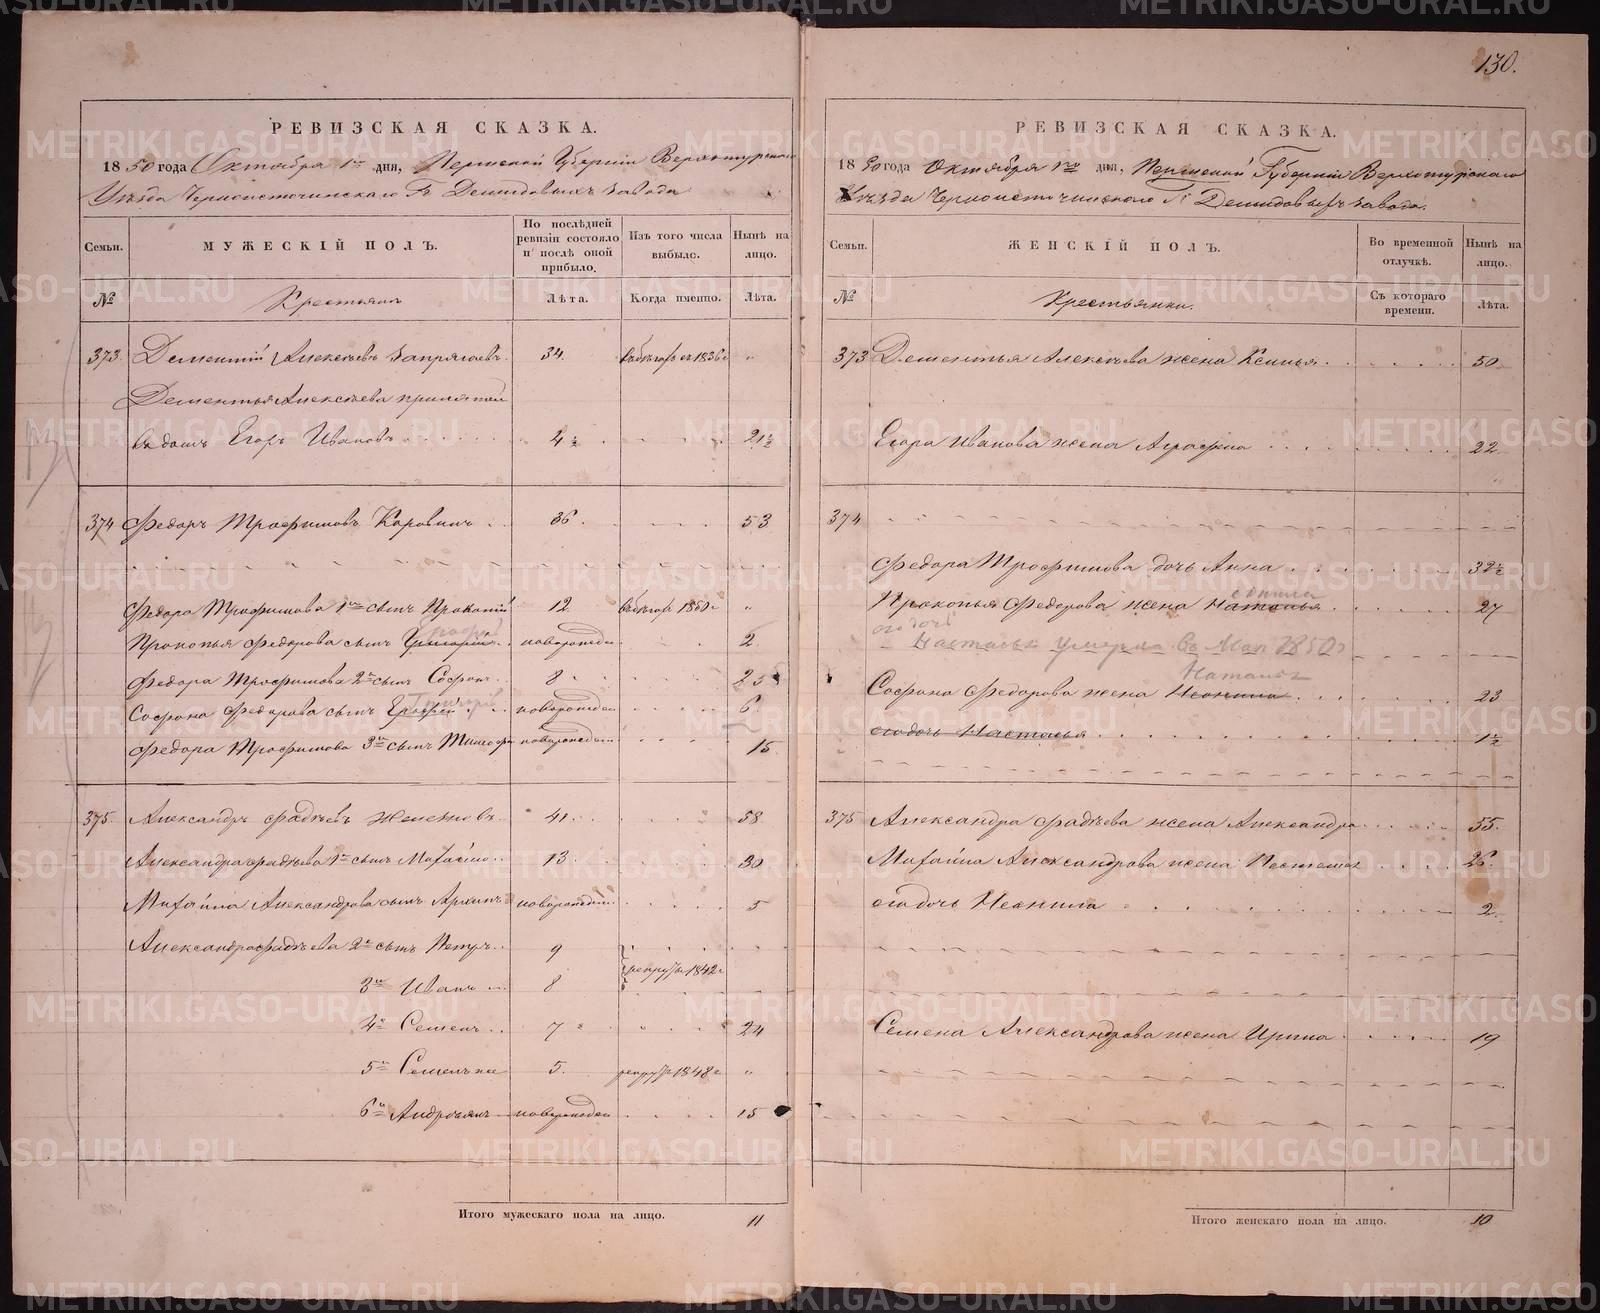 130.
РЕВИЗСКАЯ СКАЗКА.
1850 года Октября 1го дня, Пермской Губернiи Верхотурскаго
Уѣзда Черноисточинскаго Гг Демидовыхъ завода
Семьи.
МУЖЕСКIЙ ПОЛЪ.
По послѣдней ревизiи состояло и послѣ оной прибыло.
Изъ того числа выбыло.
Нынѣ на лицо.
№
Крестьянъ
Лѣта.
Когда именно.
Лѣта.
373. Дементiй Алексѣевъ Запрягаевъ 34. въ бѣгахъ съ 1836 г "
Дементья Алексѣева приемышъ
Егоръ Ивановъ 4½ 21½
374 Федоръ Трофимовъ 36. 53
Федора Трофимова 1й сынъ Прокопiй 12 въ бѣгахъ 1850 г "
Прокопья Федорова сынъ Григорiй новорожден 2
Федора Трофимова 2й сынъ Софронъ 8 25
Софрона Федорова сынъ новорожден 6
Федора Трофимова 3й сынъ Тимофей новорожден 15
375. Александръ Фадѣевъ 41. 58
Александра Фадѣева 1й сынъ Михайло 13. 30
Михайла Александрова сынъ Архипъ новорожденный 5
Александра Фадѣева 2й сынъ Петръ 9
рекруты 1842 г
3й Иванъ 8
4й Семенъ 7 " 24
5й Семенъ 5. рекруты 1848 г "
6й Андреянъ новорожден 15
Итого мужескаго пола на лицо. 11
РЕВИЗСКАЯ СКАЗКА.
1850 года Октября 1го дня, Пермской Губернiи Верхотурскаго
Уѣзда Черноисточинскаго Гг Демидовыхъ завода.
Семьи.
ЖЕНСКIЙ ПОЛЪ.
Во временной отлучкѣ.
Нынѣ на лицо.
№
Крестьянки.
Съ котораго времени.
Лѣта.
373 Дементья Алексѣева жена Ксенья 50
Егора Иванова жена Аграфена 22
374
Федора Трофимова дочь Анна 32½
Прокопья Федорова жена Наталья 27
его дочь
Настасья умерла въ Маѣ 1850 г
Наталья
Софрона Федорова жена Неонила 23
его дочь Настасья 1½
375 Александра Фадѣева жена Александра 55.
Михайла Александрова жена 26.
его дочь Неонила 2.
Семена Александрова жена Ирина 19
Итого женскаго пола на лицо. 10
METRIKI.GASO-URAL.RU